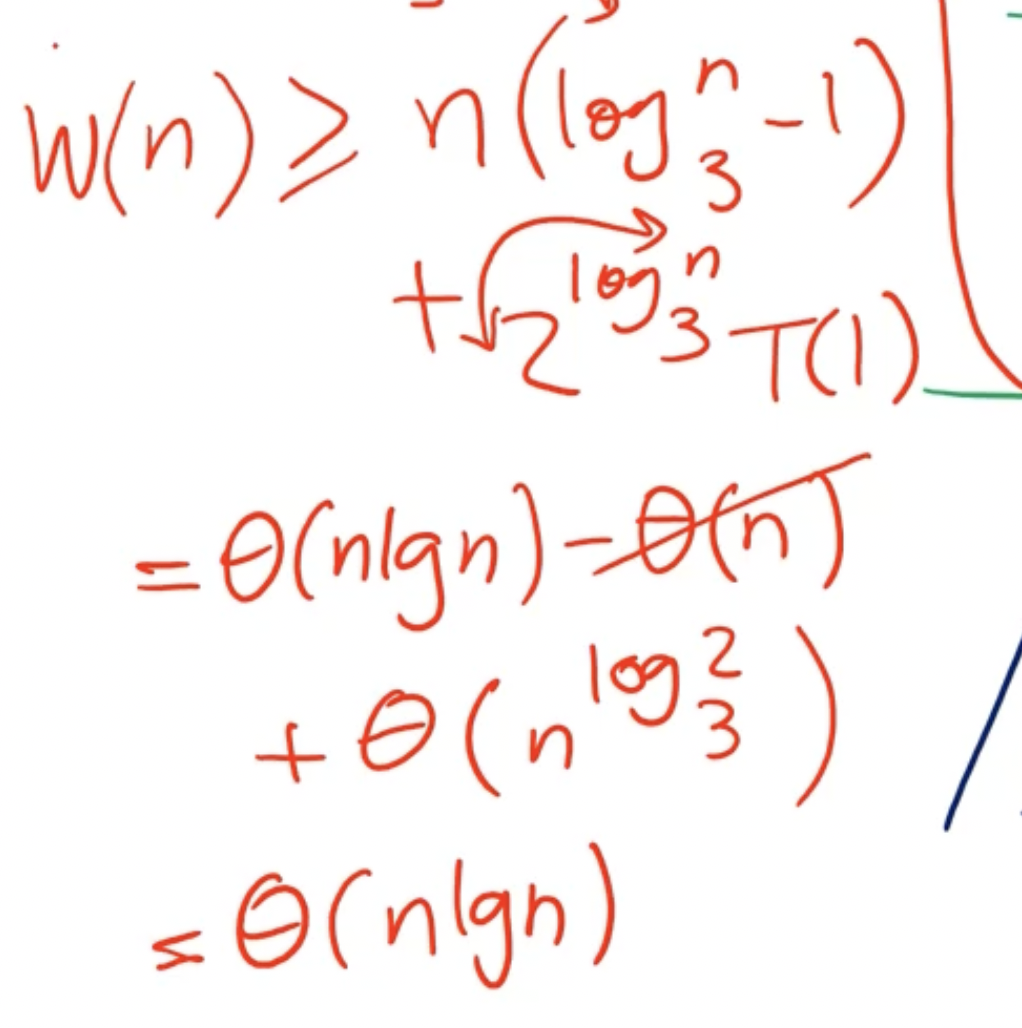 W(n) ≥ n(log₃ⁿ - 1)
+ 2^(log₃ⁿ) T(1)
= θ(nlgn) - θ(n)
+ θ(n^(log₃²))
= θ(nlgn)